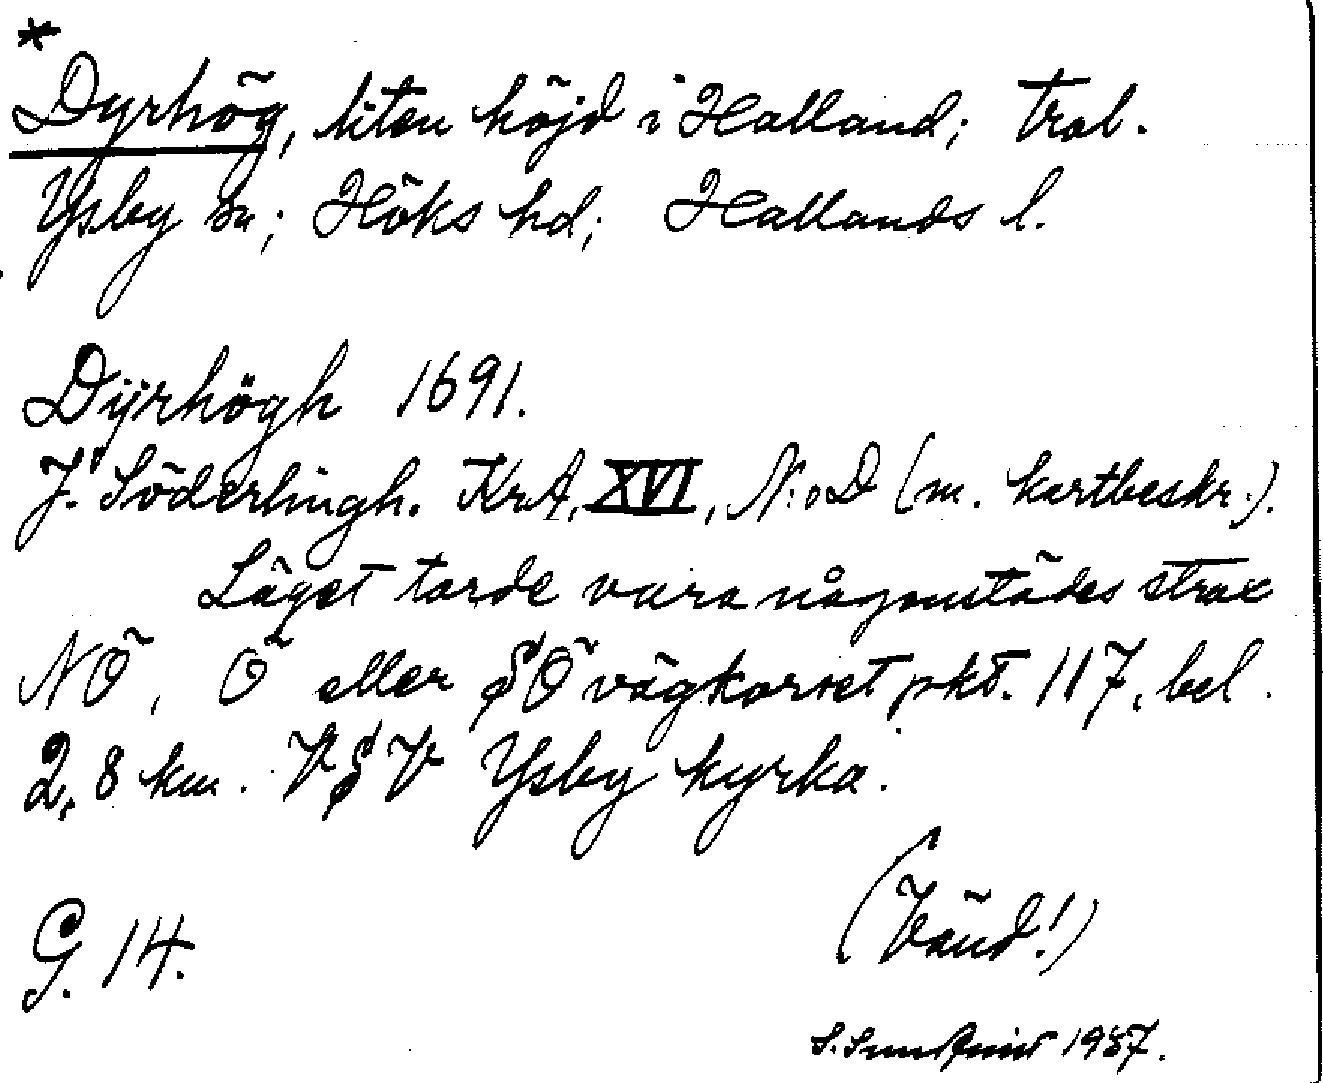 *
Dyrhög, liten höjd i Halland; trol.
Ysby sn; Höks hd; Hallands l.
Dÿrhögh 1691.
J. Söderlingh. KrA, XVI, N:o D (m. kartbeskr.).
Läget torde vara någonstädes strax
NÖ, Ö eller SÖ vägkorset pkt. 117, bel.
2,8 km. VSV Ysby kyrka.
(Vänd!)
G. 14.
S. Sundqvist 1987.